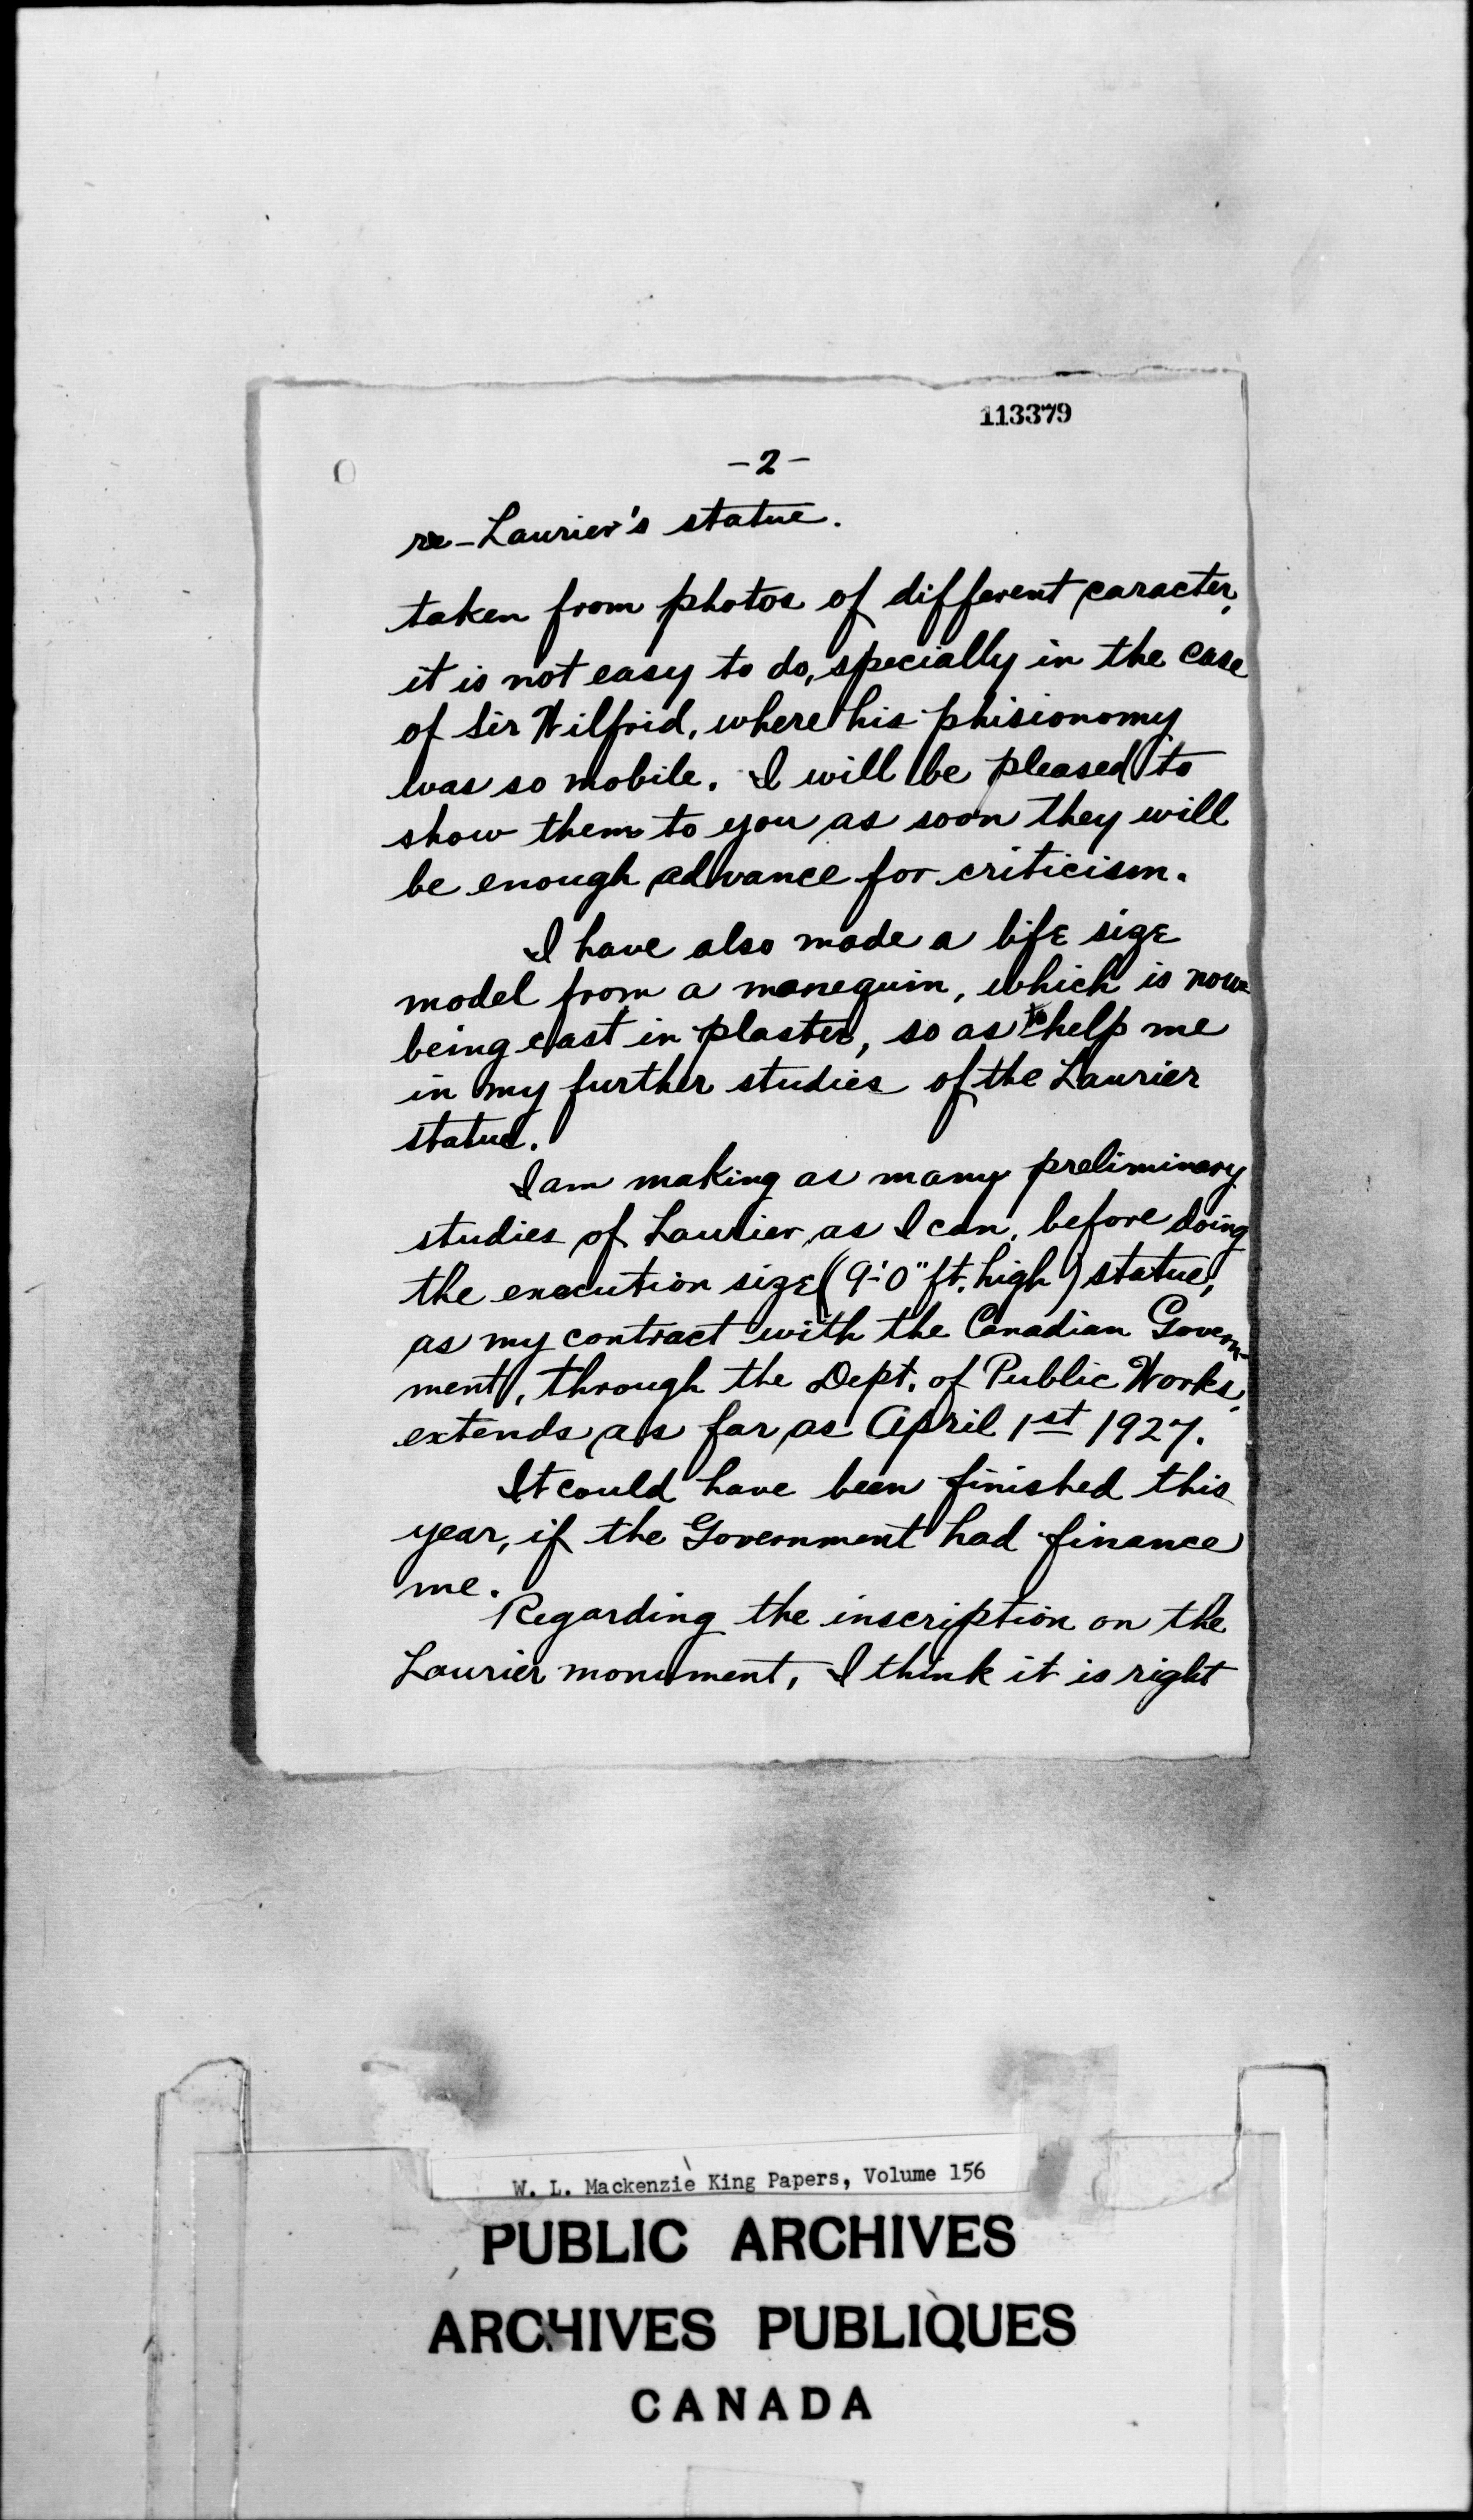 113379
- 2 -
re-Laurier's statue.
taken from photos of different caracter,
it is not easy to do, specially in the case
of Sir Wilfrid, where his phisionomy
was so mobile. I will be pleased to
show them to you as soon they will
be enough advance for criticism.
I have also made a life size
model from a manequin, which is now
being cast in plaster, so as to help me
in my further studies of the Laurier
statue.
I am making as many preliminary
studies of Laurier as I can, before doing
the execution size (9'-0" ft. high) statue,
as my contract with the Canadian Govern-
ment, through the Dept. of Public Works,
extends as far as April 1st 1927.
It could have been finished this
year, if the Government had finance
me.
Regarding the inscription on the
Laurier monument, I think it is right
W. L. Mackenzie King Papers, Volume 156
PUBLIC ARCHIVES
ARCHIVES PUBLIQUES
CANADA